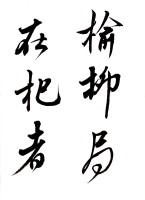 榆柳局
在杞者